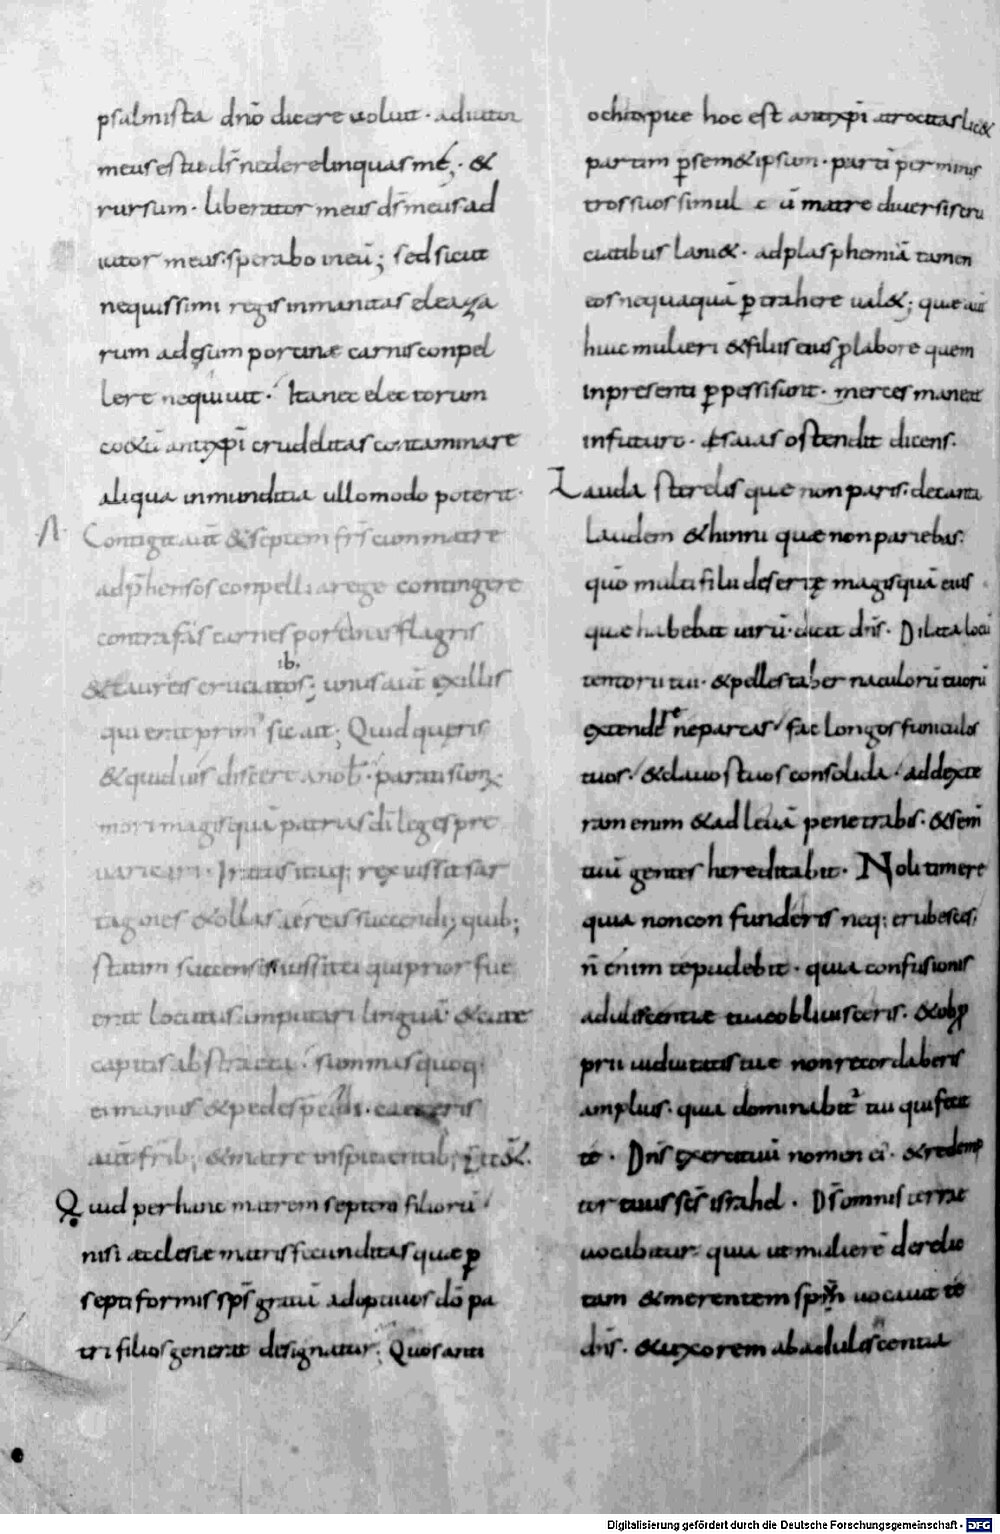 psalmista dnō dicere uoluit · adiutor
meus esto dš ne derelinquas mé; · &
rursum · liberator meus dš meus ad
iutor meus · sperabo in eū; sed sicut
nequissimi regis inmanitas eleaza
rum ad esum porcinæ carnis conpel
lere nequiuit · Ita nec electorum
coetū antixpī crudelitas contaminare
aliqua inmunditia ullo modo poterit ·
Contigit aūt & septem frs cum matre
adp̄hensos conpelli a rege contingere
contra fas carnes porcinas flagris
& taureis cruciatos; unus aūt ex illis
qui erat prim' sic ait; Quid queris
& quid uis discere a nob · parati sum
mori magis quā patrias dī leges pre
uaricari · Iratus itaq; rex iussit sar
tagines & ollas aereas succendi; quib;
statim succensis iussit ei qui prior fue
rat locutus amputari linguā · & cute
capitis abstracta · summas quoq;
ei manus & pedes · ceteris
aūt frib; & matre inspicientib;
Quid per hanc matrem septem filiorū
nisi æcclesiæ matris fecunditas quæ ꝑ
septiformis spš gratiā adoptiuos dō pa
tri filios generat designatur; Quos anti
ochi hoc est antixpī atrocitas lic&
partim ꝑ sem&ipsum · partī per minis
tros suos simul cū matre diuersis cru
ciatibus lani& · ad plasphemiā tamen
eos nequaquā ꝑtrahere ual&; quæ aūt
huic mulieri & filiis eius ꝓ labore quem
in presenti ꝑpessi sunt · merces maneat
in futuro · esaias ostendit dicens ·
Lauda sterelis quæ non paris · decanta
laudem & hinni quæ non pariebas ·
quō multi filii desertę magis quā eius
quæ habebat uirū · dicit dns · Dilata locū
tentorii tui · & pelles tabernaculorū tuorū
extende ne parcas · fac longos funiculos
tuos · & clauos tuos consolida · ad dexte
ram enim & ad leuā penetrabis · & sem
tuū gentes hereditabit · Noli timere
quia non confunderis neq; erubesces ·
n̄ enim te pudebit · quia confusionis
aduliscentiæ tuæ obliuisceris · & obꝓ
prii uiduitatis tuæ non recordaberis
amplius · quia dominabit̄ tui qui fecit
te · Dns exercituū nomen ei · & redemp
tor tuus scš israhel · Dš omnis terræ
uocabitur · quia ut mulierē derelic
tam & merentem spū uocauit te
dns · & uxorem ab adulescentia
Digitalisierung gefördert durch die Deutsche Forschungsgemeinschaft - DFG